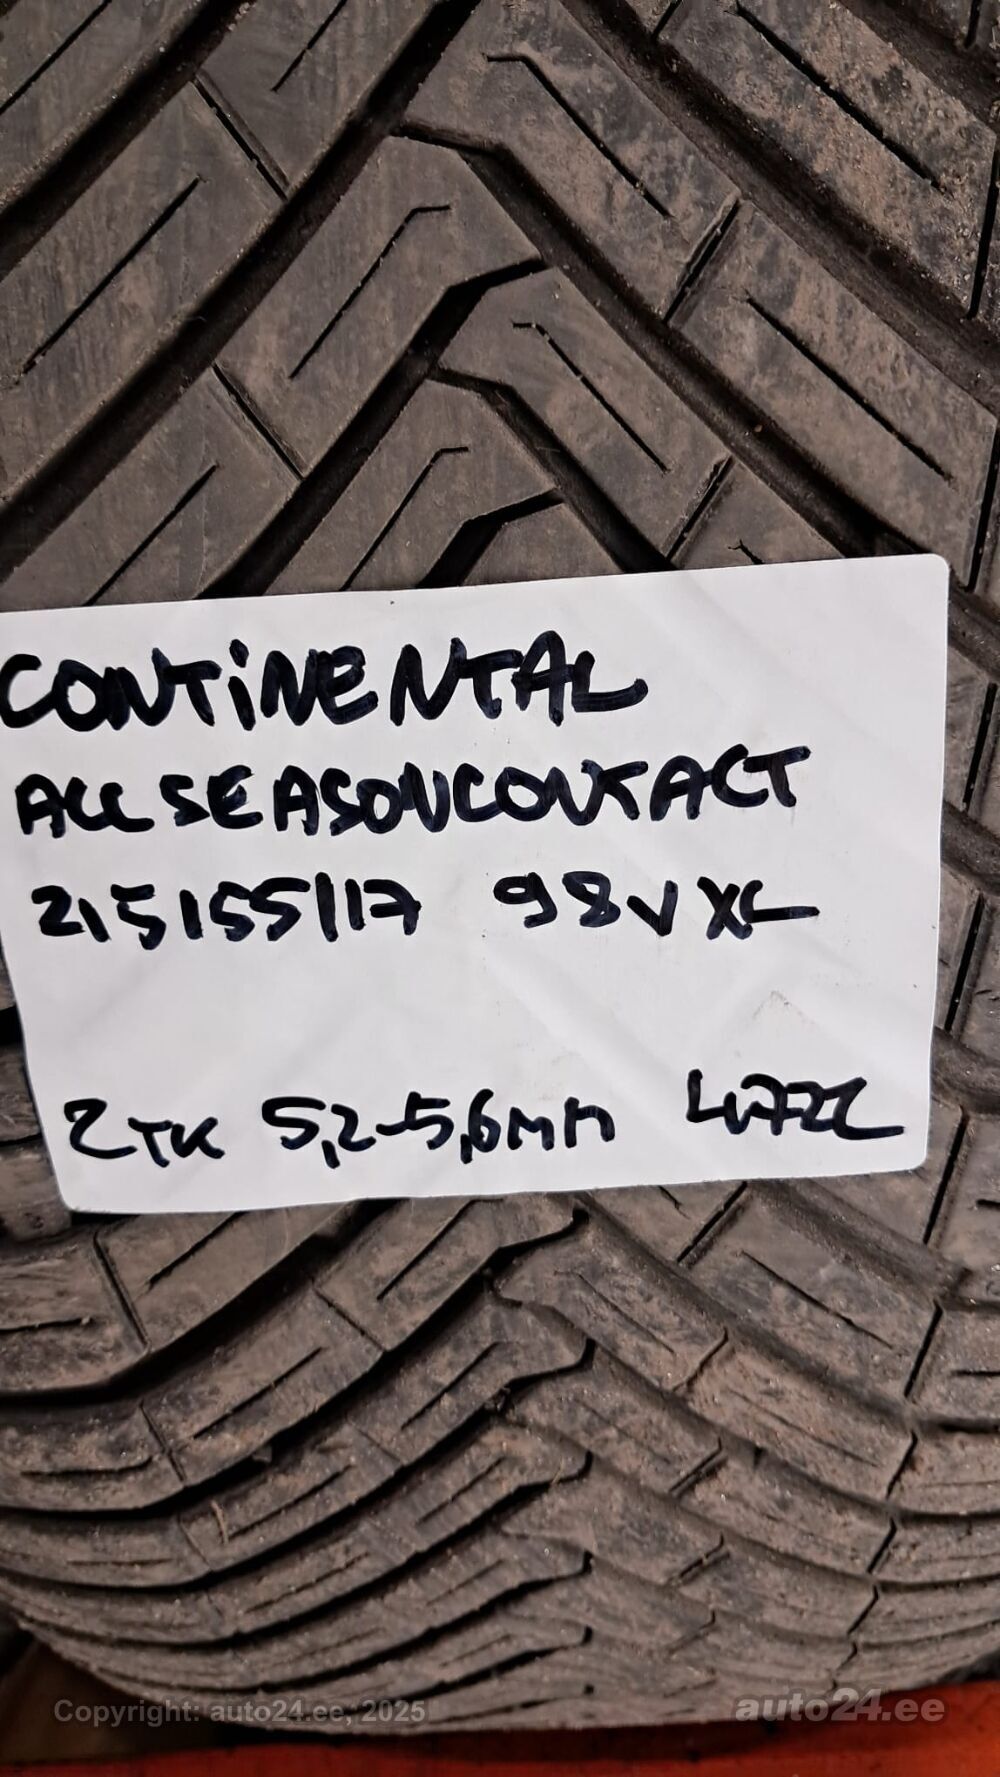 CONTiNENTAL
ALLSEASONCONTACT
215/55/17 98V XL
2TK 5,2-5,6mm
Copyright: auto24.ee, 2025
auto24.ee